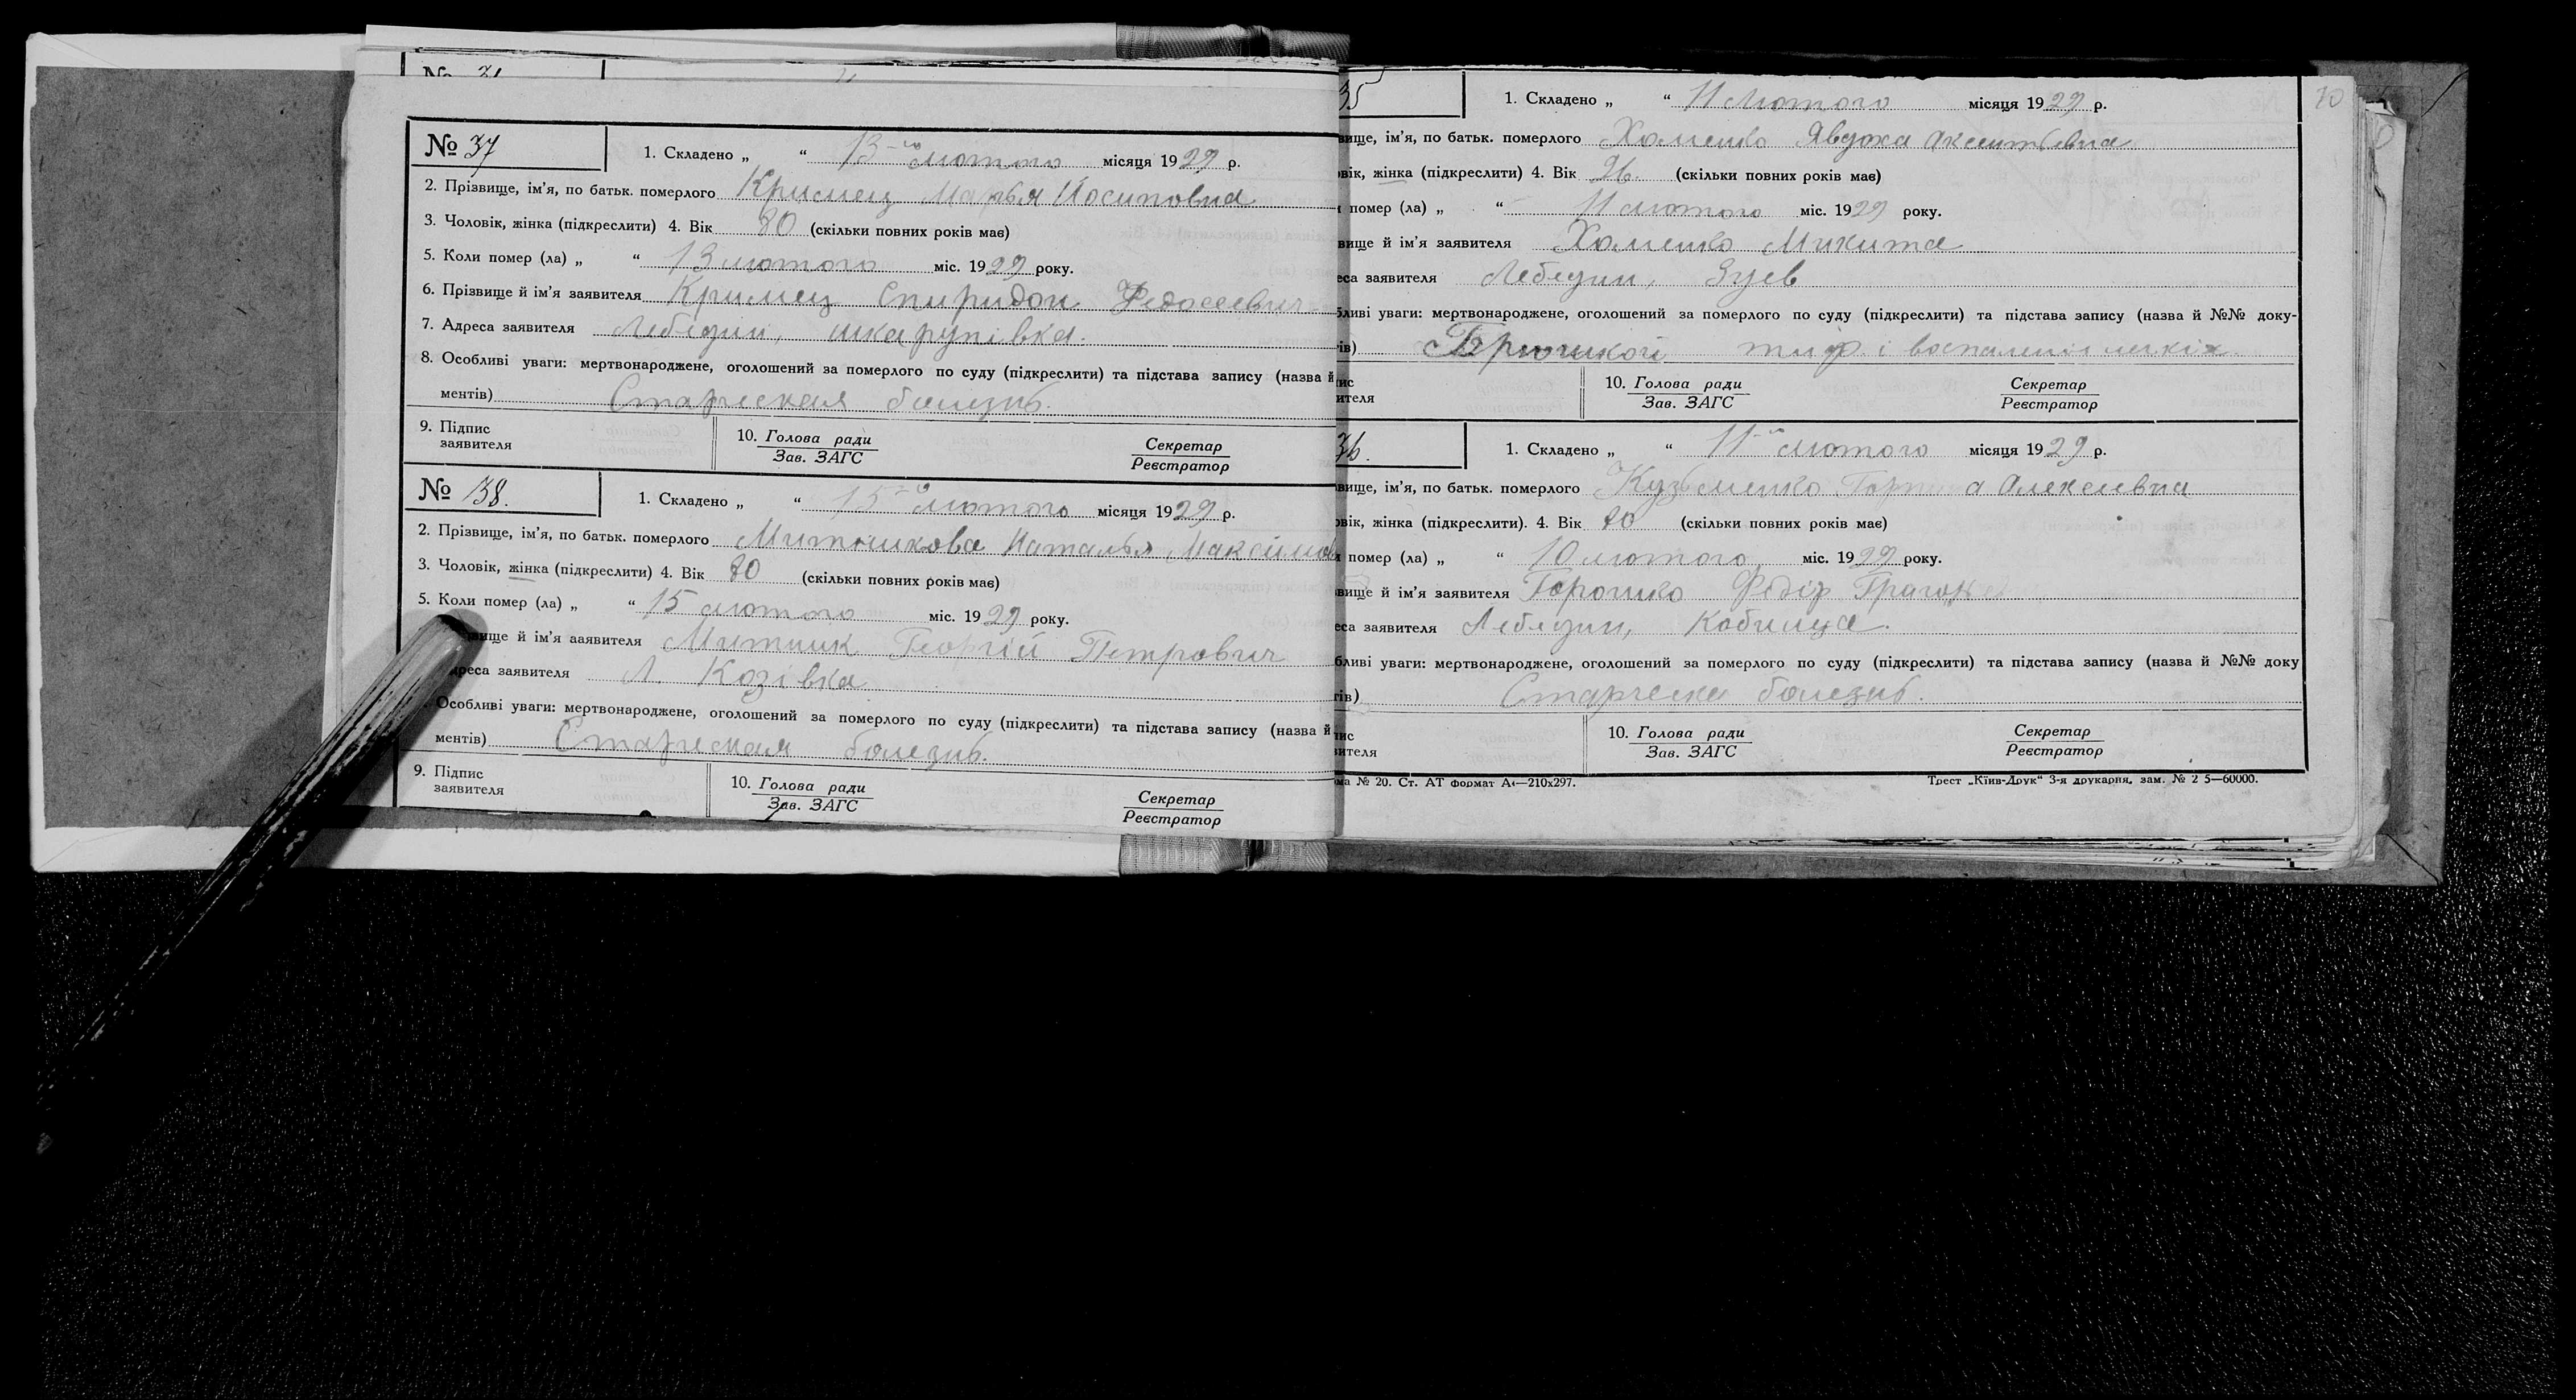 № 37
1. Складено „ “ 13-го лютого місяця 1929 р.
2. Прізвище, ім'я, по батьк. померлого Кримец Марья Йосиповна
3. Чоловік, жінка (підкреслити) 4. Вік 80 (скільки повних років має)
5. Коли помер (ла) „ “ 13 лютого міс. 1929 року.
6. Прізвище й ім'я заявителя Кримец Спиридон Федосеевич
7. Адреса заявителя Лебедин, шкарупівка.
8. Особливі уваги: мертвонароджене, оголошений за померлого по суду (підкреслити) та підстава запису (назва й
ментів) Старческая болезнь.
9. Підпис заявителя
10. Голова ради
Зав. ЗАГС
Секретар
Реєстратор
№ 38.
1. Складено „ “ 15-го лютого місяця 1929 р.
2. Прізвище, ім'я, по батьк. померлого Митникова Наталья Максимов
3. Чоловік, жінка (підкреслити) 4. Вік 80 (скільки повних років має)
5. Коли помер (ла) „ “ 15 лютого міс. 1929 року.
вище й ім'я аявителя Митник Георгій Петрович
дреса заявителя Л. Козівка
Особливі уваги: мертвонароджене, оголошений за померлого по суду (підкреслити) та підстава запису (назва й
ментів) Старческая болезнь.
9. Підпис заявителя
10. Голова ради
Зав. ЗАГС
Секретар
Реєстратор
70
35
1. Складено „ “ 11 Лютого місяця 1929 р.
вище, ім'я, по батьк. померлого Хоменко Явдоха Аксентьевна
вік, жінка (підкреслити) 4. Вік 26. (скільки повних років має)
помер (ла) „ “ 11 лютого міс. 1929 року.
вище й ім'я заявителя Хоменко Микита
еса заявителя Лебедин, Зуев
ливі уваги: мертвонароджене, оголошений за померлого по суду (підкреслити) та підстава запису (назва й №№ доку-
ів) Брюшной тиф і воспаленія легкіх.
ис
ителя
10. Голова ради
Зав. ЗАГС
Секретар
Реєстратор
36.
1. Складено „ “ 11-го лютого місяця 1929 р.
вище, ім'я, по батьк. померлого Кузьменко Алексеевна
вік, жінка (підкреслити). 4. Вік 80 (скільки повних років має)
помер (ла) „ “ 10 лютого міс. 1929 року.
вище й ім'я заявителя Горошко Федір
еса заявителя Лебедин, Кобилца.
ливі уваги: мертвонароджене, оголошений за померлого по суду (підкреслити) та підстава запису (назва й №№ доку
ів) Старческа болезнь.
ис
ителя
10. Голова ради
Зав. ЗАГС
Секретар
Реєстратор
ма № 20. Ст. АТ формат А4—210х297.
Трест „Київ-Друк“ 3-я друкарня, зам. № 2 5—60000.